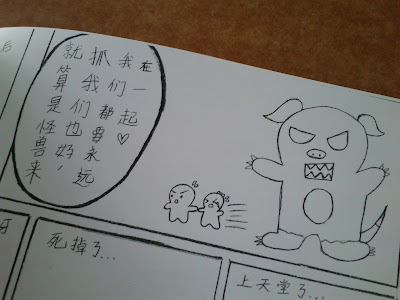 就算是怪兽来
抓我们也好，
我们都要永远
在一起♡
死掉了...
上天堂了...